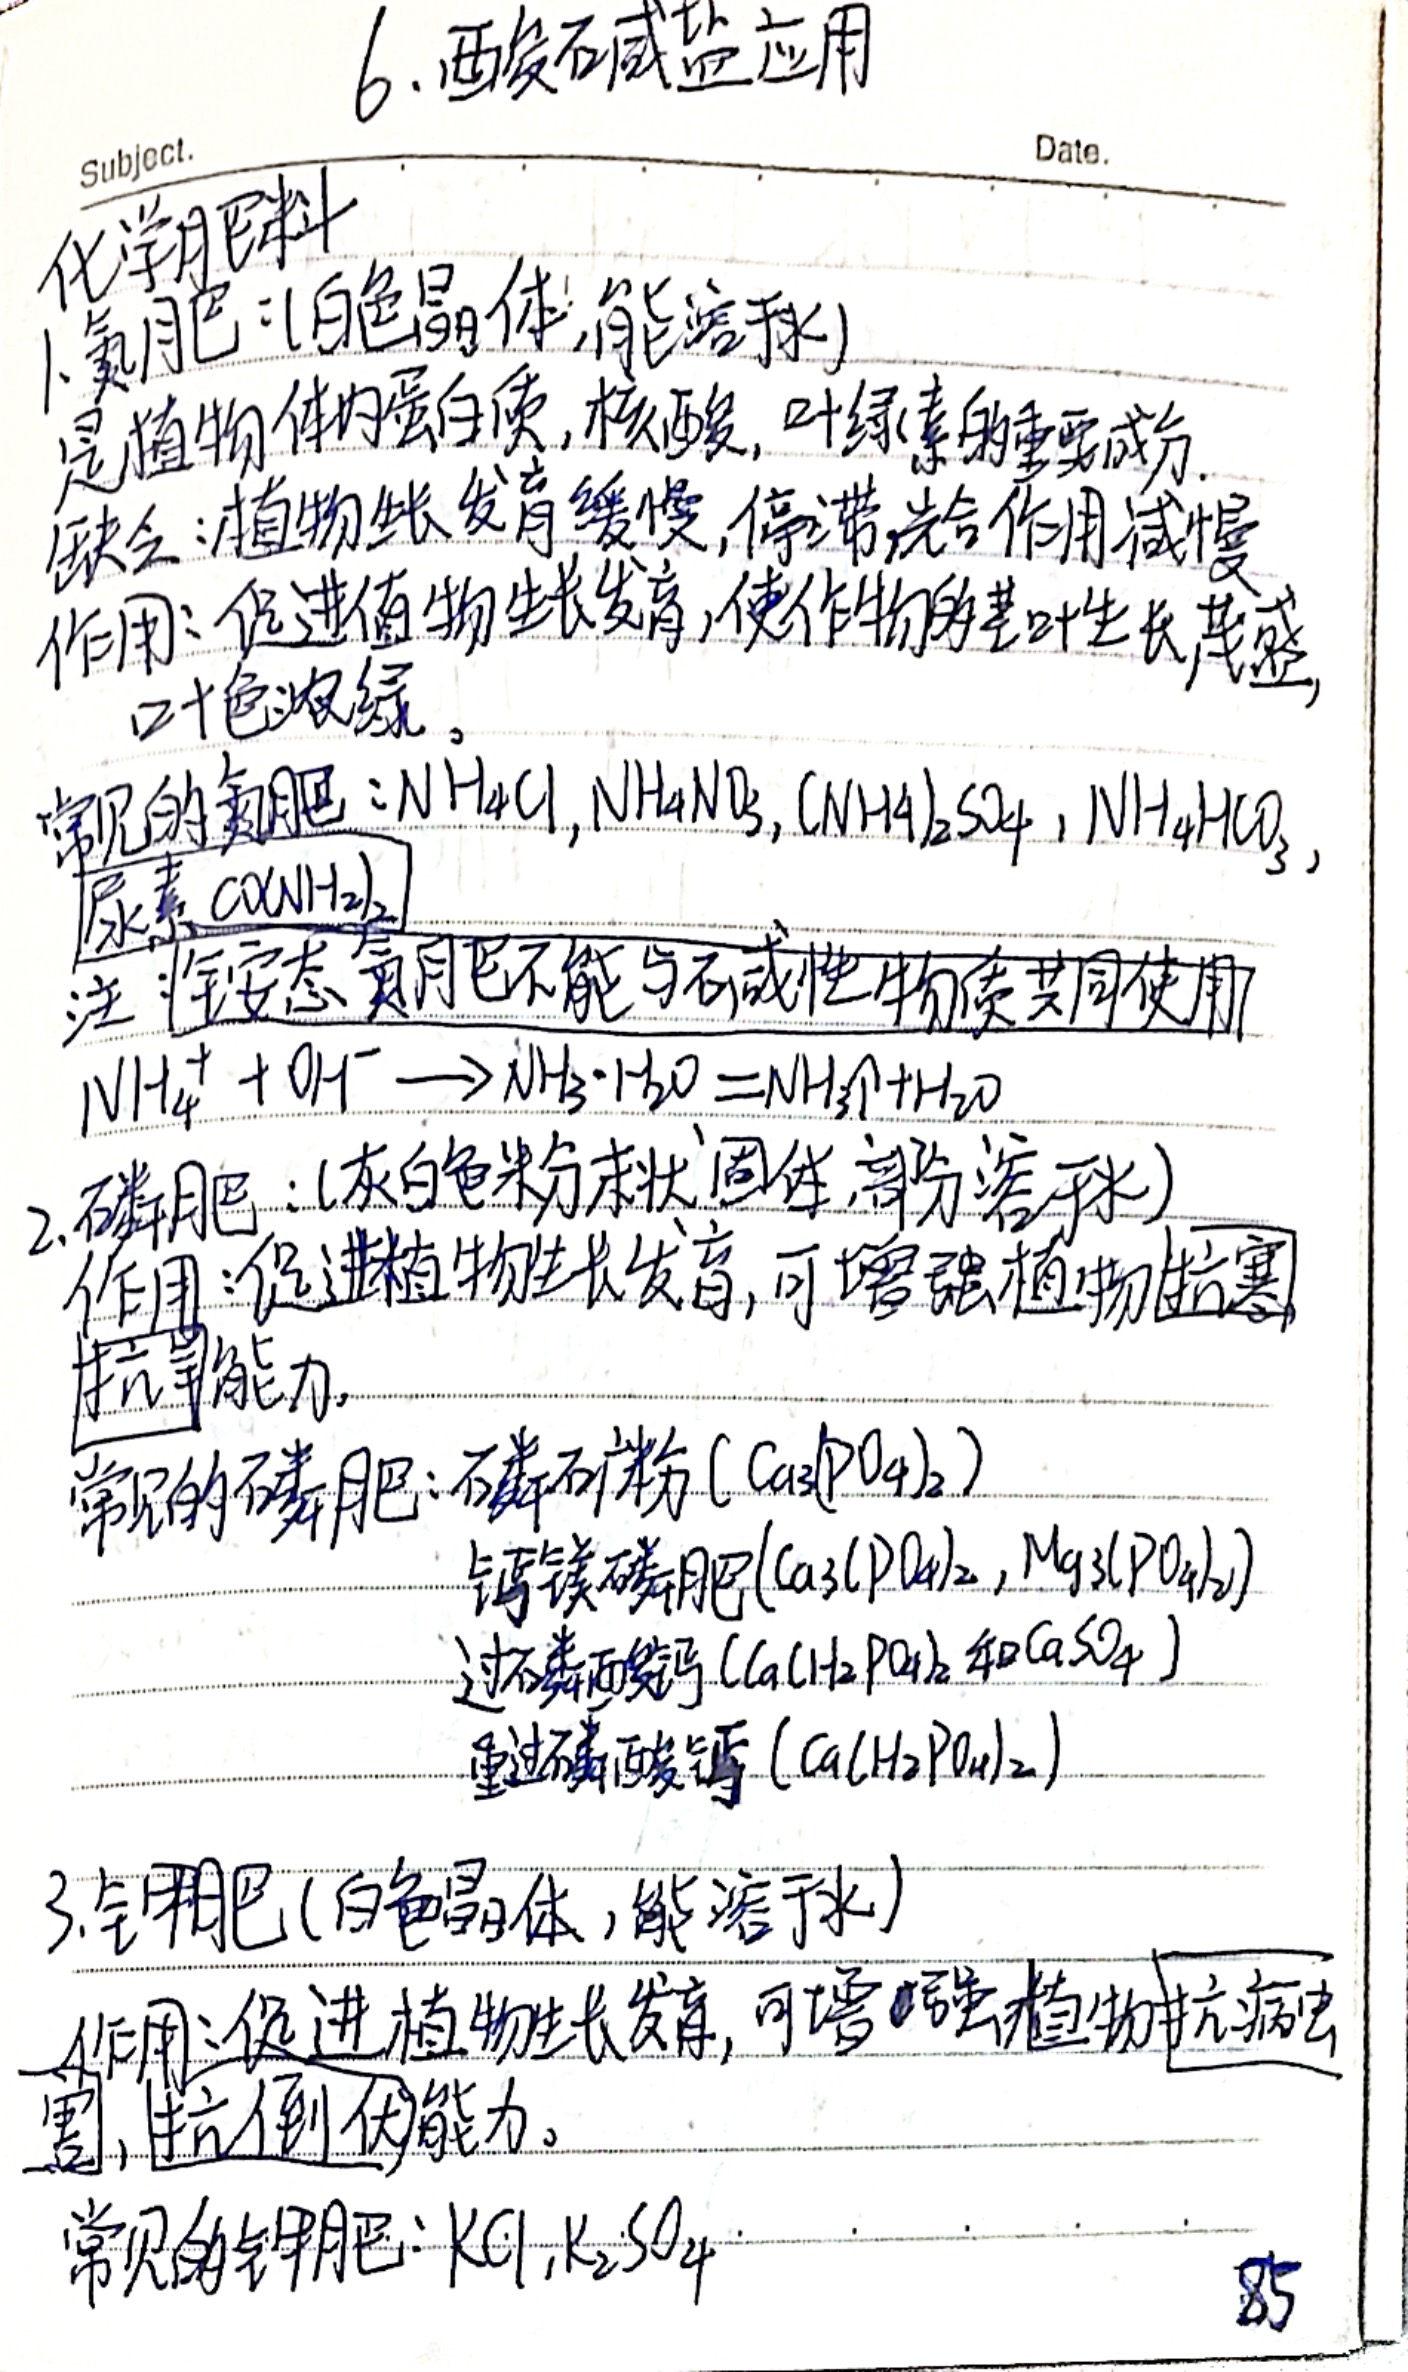 6.酸碱盐应用
Subject.
Date.
化学肥料
1.氮肥:(白色晶体,能溶于水)
是植物体内蛋白质,核酸,叶绿素的重要成分.
缺乏:植物生长发育缓慢,停滞,光合作用减慢
作用:促进植物生长发育,使作物的茎叶生长茂盛,
叶色浓绿。
常见的氮肥:NH₄Cl,NH₄NO₃,(NH4)₂SO₄,NH₄HCO₃,
尿素 CO(NH₂)₂
注 铵态氮肥不能与碱性物质共同使用
NH₄⁺+OH⁻→NH₃·H₂O=NH₃↑+H₂O
2.磷肥:(灰白色粉末状固体,部分溶于水)
作用:促进植物生长发育,可增强植物抗寒
抗旱能力.
常见的磷肥:磷矿粉(Ca₃(PO₄)₂)
钙镁磷肥(Ca₃(PO₄)₂,Mg₃(PO₄)₂)
过磷酸钙(Ca(H₂PO₄)₂和CaSO₄)
重过磷酸钙(Ca(H₂PO₄)₂)
3.钾肥(白色晶体,能溶于水)
作用:促进植物生长发育,可增强植物抗病虫
害,抗倒伏能力。
常见的钾肥:KCl,K₂SO₄
85